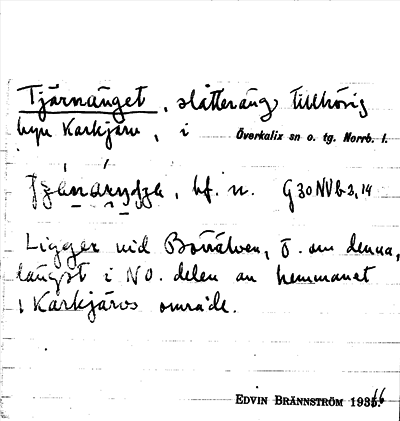 Tjärnänget, slåtteräng tillhörig
byn Karkjärv, i Överkalix sn o. tg. Norrb. l.
bf. n. G30NVb3,14
Ligger vid Börrälven, Ö. om denna,
längst i NO. delen av hemmanet
i Karkjärvs område.
EDVIN BRÄNNSTRÖM 1936.